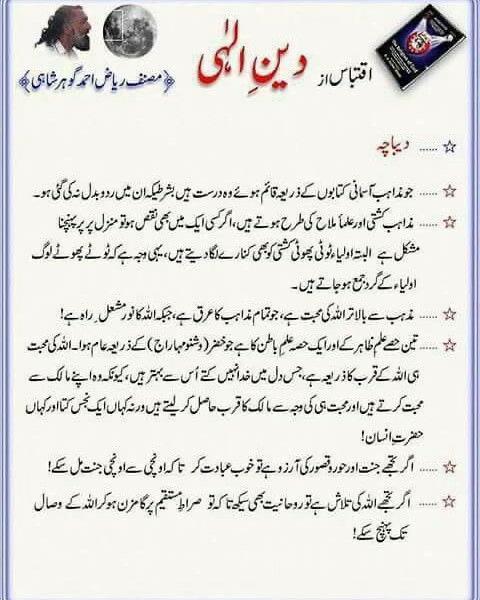 اقتباس از دینِ الٰہی
﴿مصنف ریاض احمد گوہر شاہی﴾
☆ ...... دیباچہ
☆ ...... جو مذاہب آسمانی کتابوں کے ذریعہ قائم ہوئے وہ درست ہیں بشرطیکہ ان میں ردوبدل نہ کی گئی ہو۔
☆ ...... مذاہب کشتی اور علمأ ملاح کی طرح ہوتے ہیں، اگر کسی ایک میں بھی نقص ہو تو منزل پر پر پہنچنا
مشکل ہے البتہ اولیاء ٹوٹی پھوٹی کشتی کو بھی کنارے لگا دیتے ہیں، یہی وجہ ہے کہ ٹوٹے پھوٹے لوگ
اولیاء کے گرد جمع ہو جاتے ہیں۔
☆ ...... مذہب سے بالاتر اللہ کی محبت ہے، جو تمام مذاہب کا عرق ہے، جبکہ اللہ کا نور مشعلِ راہ ہے!
☆ ...... تین حصے علم ظاہر کے اور ایک حصہ علم باطن کا ہے جو خضر (وشنو مہاراج) کے ذریعہ عام ہوا۔ اللہ کی محبت
ہی اللہ کے قرب کا ذریعہ ہے، جس دل میں خدا نہیں کتے اُس سے بہتر ہیں، کیونکہ وہ اپنے مالک سے
محبت کرتے ہیں اور محبت ہی کی وجہ سے مالک کا قرب حاصل کر لیتے ہیں ورنہ کہاں ایک نجس کتا اور کہاں
حضرتِ انسان!
☆ ...... اگر تجھے جنت اور حور و قصور کی آرزو ہے تو خوب عبادت کر تا کہ اونچی سے اونچی جنت مل سکے!
☆ ...... اگر تجھے اللہ کی تلاش ہے تو روحانیت بھی سیکھ تا کہ تو صراطِ مستقیم پر گامزن ہو کر اللہ کے وصال
تک پہنچ سکے!